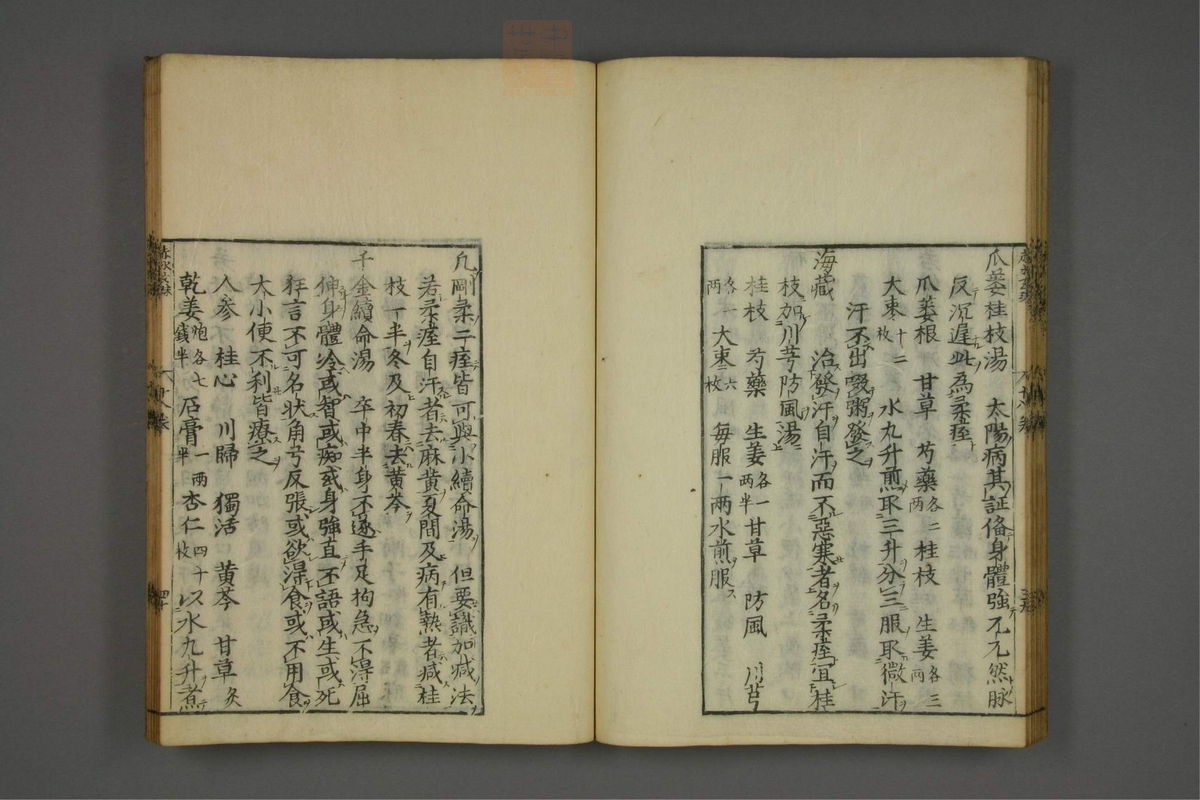 瓜蔞桂枝湯 太陽病其証俻身體強几几然脉
反沉遲此為柔痙
瓜蔞根 甘草 芍藥各二両 桂枝 生姜各三両
大棗十二枚 水九升煎取三升分三服取微汗
汗不出啜粥發之
海藏 治發汗自汗而不惡寒者名柔痙宜桂
枝加川芎防風湯
桂枝 芍藥 生姜各一両半 甘草 防風 川芎
各一両 大棗六枚 每服一両水煎服
凡剛柔二痙皆可與小續命湯 但要識加减法
若柔痙自汗者去麻黄夏間及病有熱者减桂
枝一半冬及初春去黄芩
千金續命湯 卒中半身不遂手足拘急不得屈
伸身體冷或智或痴或身強直不語或生或死
狂言不可名状角弓反張或欲得食或不用食
大小便不利皆療之
人参 桂心 川歸 獨活 黄芩 甘草炙
乾姜炮各七錢半 石膏一両半 杏仁四十枚 以水九升煮